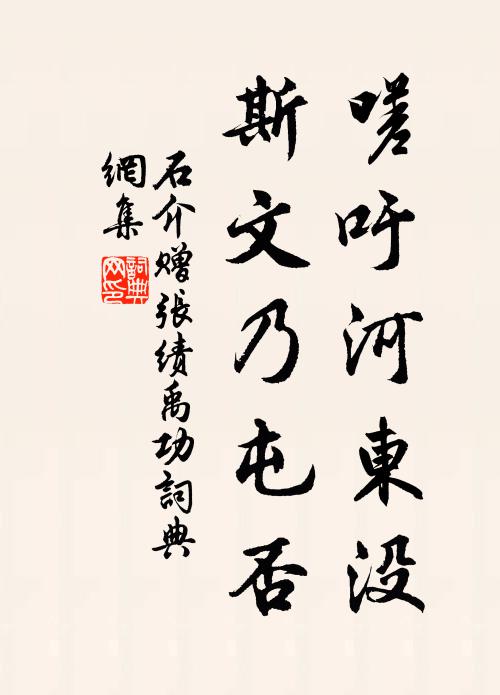 嗟吁河東没
斯文乃屯否
石介赠張績禹功詞典
網集
詞典
网印